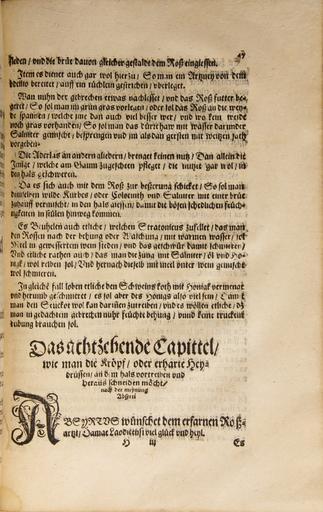 47
sieden / vnd die brüe dauon gleicher gestalde dem Roß eingiessen.
Item es dienet auch gar wol hierzu / So man ein Artzney von dem
bereitet / auff ein tüchlein gestrichen / vberleget.
Wan nuhn der gebrechen etwas nachlesset / vnd das Roß futter be-
geret / So sol man im grün gras vorlegen / oder sol das Roß an die wey-
de spannen / welche jme dan auch viel besser wer / vnd wo kein weide
noch gras vorhanden / So sol man das dürre haw mit wasser darunder
Salniter gemischt / besprengen vnd im als dan gersten mit spitzen
vorgeben.
Die Aderlas am andern gliedern / brenget keinen nutz / Dan allein die
jenige / welche am Gaum zugeschehen pfleget / die nutzet gar wol / in
den hals geschweren.
Da es sich auch mit dem Roß zur besserung schicket / So sol man
demselben wilde Kürbes / oder Colocinth vnd Salniter mit einer brüe
zuhauff vermischt / in den hals giessen / damit die bösen schedlichen feuch-
tigkeiten in füllen hinweg kommen.
Es Bruhelen auch etliche / welchen Stratonicus zufellet / das man
den Rossen nach der hebung oder Walchung / mit warmen wasser / sol
Mirel in gewessertem wein sieden / vnd das geschwür damit schmieren /
Vnd etliche rathen auch / das man die zung mit Salniter / öl vnd Ho-
nigk / wol reiben sol / Vnd hernach dieselb mit mehl vnter wein gemischt
wol schmieren.
Ingleichē fall loben etliche den Schweins koth mit Honigk vermenget
vnd herumb geschmieret / es sol aber des Honigs also viel sein / Damit
man den Stücker wol kan darinnen zutreiben / vnd es wöllen etliche / das
man in gedachtem gebrechen nuhr feuchte behung / vnnd keine truckene
dübung brauchen sol.
Das achtzehende Capittel /
wie man die Kröpf / oder erharte Hey-
drüssen / an dem hals vortreiben vnd
heraus schneiden möcht /
nach der meynung
Absyrti
ABSYRTVS wünschet dem erfarnen Roß-
artzt / Damat Laodicensi viel glück vnd heyl.
H iij Es